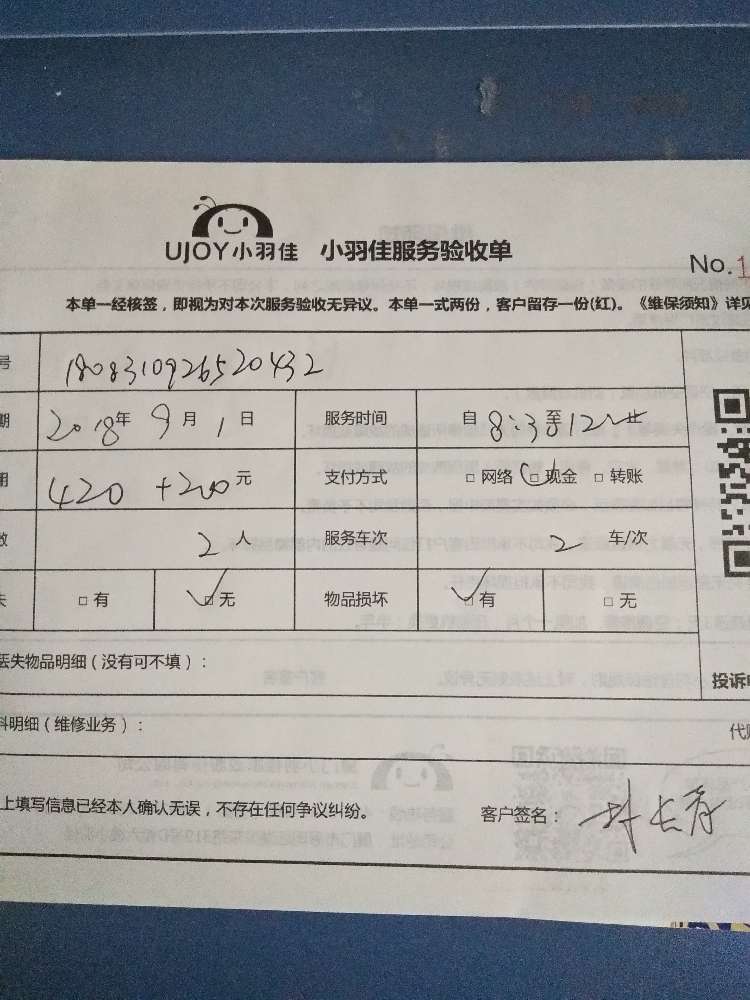 UJOY小羽佳 小羽佳服务验收单
No.1
本单一经核签，即视为对本次服务验收无异议。本单一式两份，客户留存一份(红)。《维保须知》详见
号 1808310926520432
期 2018年 9月 1日 服务时间 自 8:3至12
用 420 +200元 支付方式 □ 网络 □ 现金 □ 转账
数 2人 服务车次 2 车/次
失 □ 有 □ 无 物品损坏 □ 有 □ 无
丢失物品明细（没有可不填）：
投诉
料明细（维修业务）：
代
上填写信息已经本人确认无误，不存在任何争议纠纷。 客户签名： 林长存